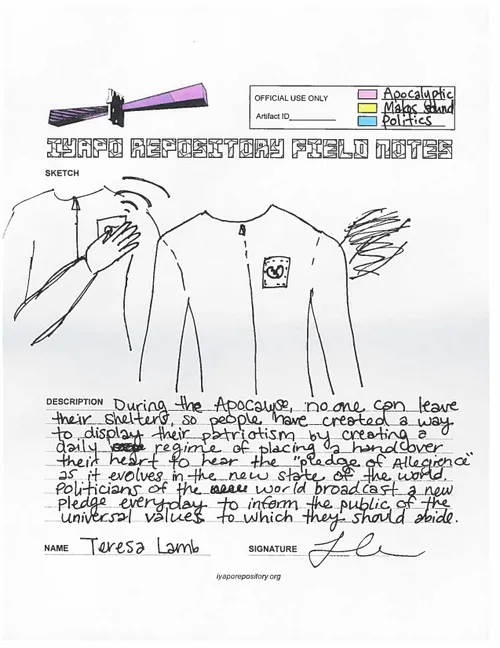 OFFICIAL USE ONLY
Artifact ID
Apocalyptic
Makes Sound
Politics
IYAPO REPOSITORY FIELD NOTES
SKETCH
DESCRIPTION During the Apocalypse, no one can leave
their shelters, so people have created a way
to display their patriotism by creating a
daily regime of placing a hand over
their heart to hear the "pledge of Allegience"
as it evolves in the new state of the world.
Politicians of the world broadcast a new
pledge everyday to inform the public of the
universal values to which they should abide.
NAME Teresa Lamb SIGNATURE
iyaporepository.org